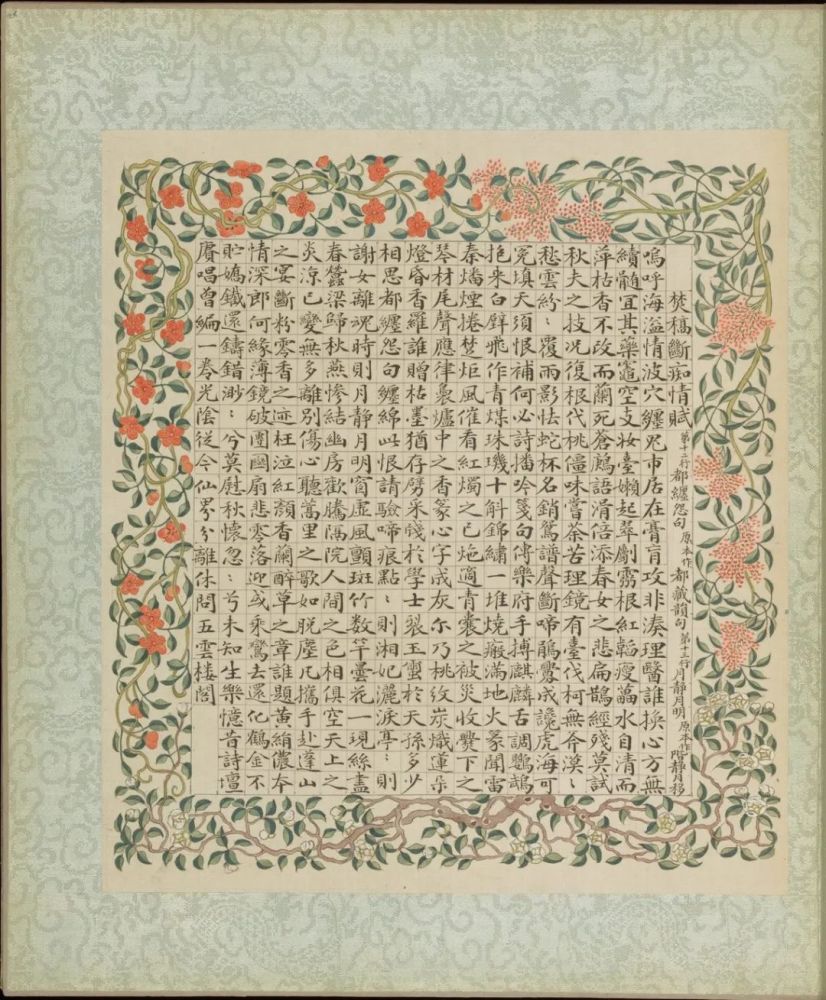 焚稿斷痴情賦 第十二行都纏怨句原本作都藏韻句第十三行月靜月明原本作階靜月移
嗚呼海溢情波穴纏咒市居在膏肓攻非湊理醫誰換心方無
續髓宜其藥竈空支妝臺嬾起翠劚霜根紅韜瘦萹水自清而
萍枯香不改而蘭死蒼鷓語滑倍添春女之悲扁鵲經殘莫試
秋夫之技況復根代桃僵味嘗荼苦理鏡有臺伐柯無斧漠〻
愁雲紛〻覆雨影怯蛇杯名銷鴛譜聲斷啼鵑釁成讒虎海可
冤填天須恨補何必詩播吟箋句傳樂府手搏麒麟舌調鸚鵡
抱来白壁飛作青煤珠璣十斛錦繡一堆燒瘢滿地火豪聞雷
秦燔煙捲楚炬風催看紅燭之已灺適青囊之被災收爨下之
琴材尾聲應律裊爐中之香篆心字成灰尔乃桃紋炭熾蓮朵
燈昏香羅誰贈枯墨猶存劈采牋於學士裂玉璽於天孫多少
相思都纏怨句纏綿此恨請驗啼痕點〻則湘妃灑淚亭〻則
謝女離魂時則月靜月明窗虛風顫斑竹数竿曇花一現絲盡
春蠶梁歸秋燕慘結幽房歡騰隔院人間之色相俱空天上之
炎涼已變無多離別傷心聽蒿里之歌如脱塵凡攜手赴蓬山
之宴斷粉零香之迹枉泣紅顏香蘭醉草之章誰題黃絹儂本
情深郎何緣薄鏡破團圝扇悲零落迎或乘鸞去還化鶴金不
貯嬌鐵還鑄錯渺〻兮莫慰秋懷忽〻兮未知生樂憶昔詩壇
賡唱曾編一卷光陰從今仙界分離休問五雲樓閣